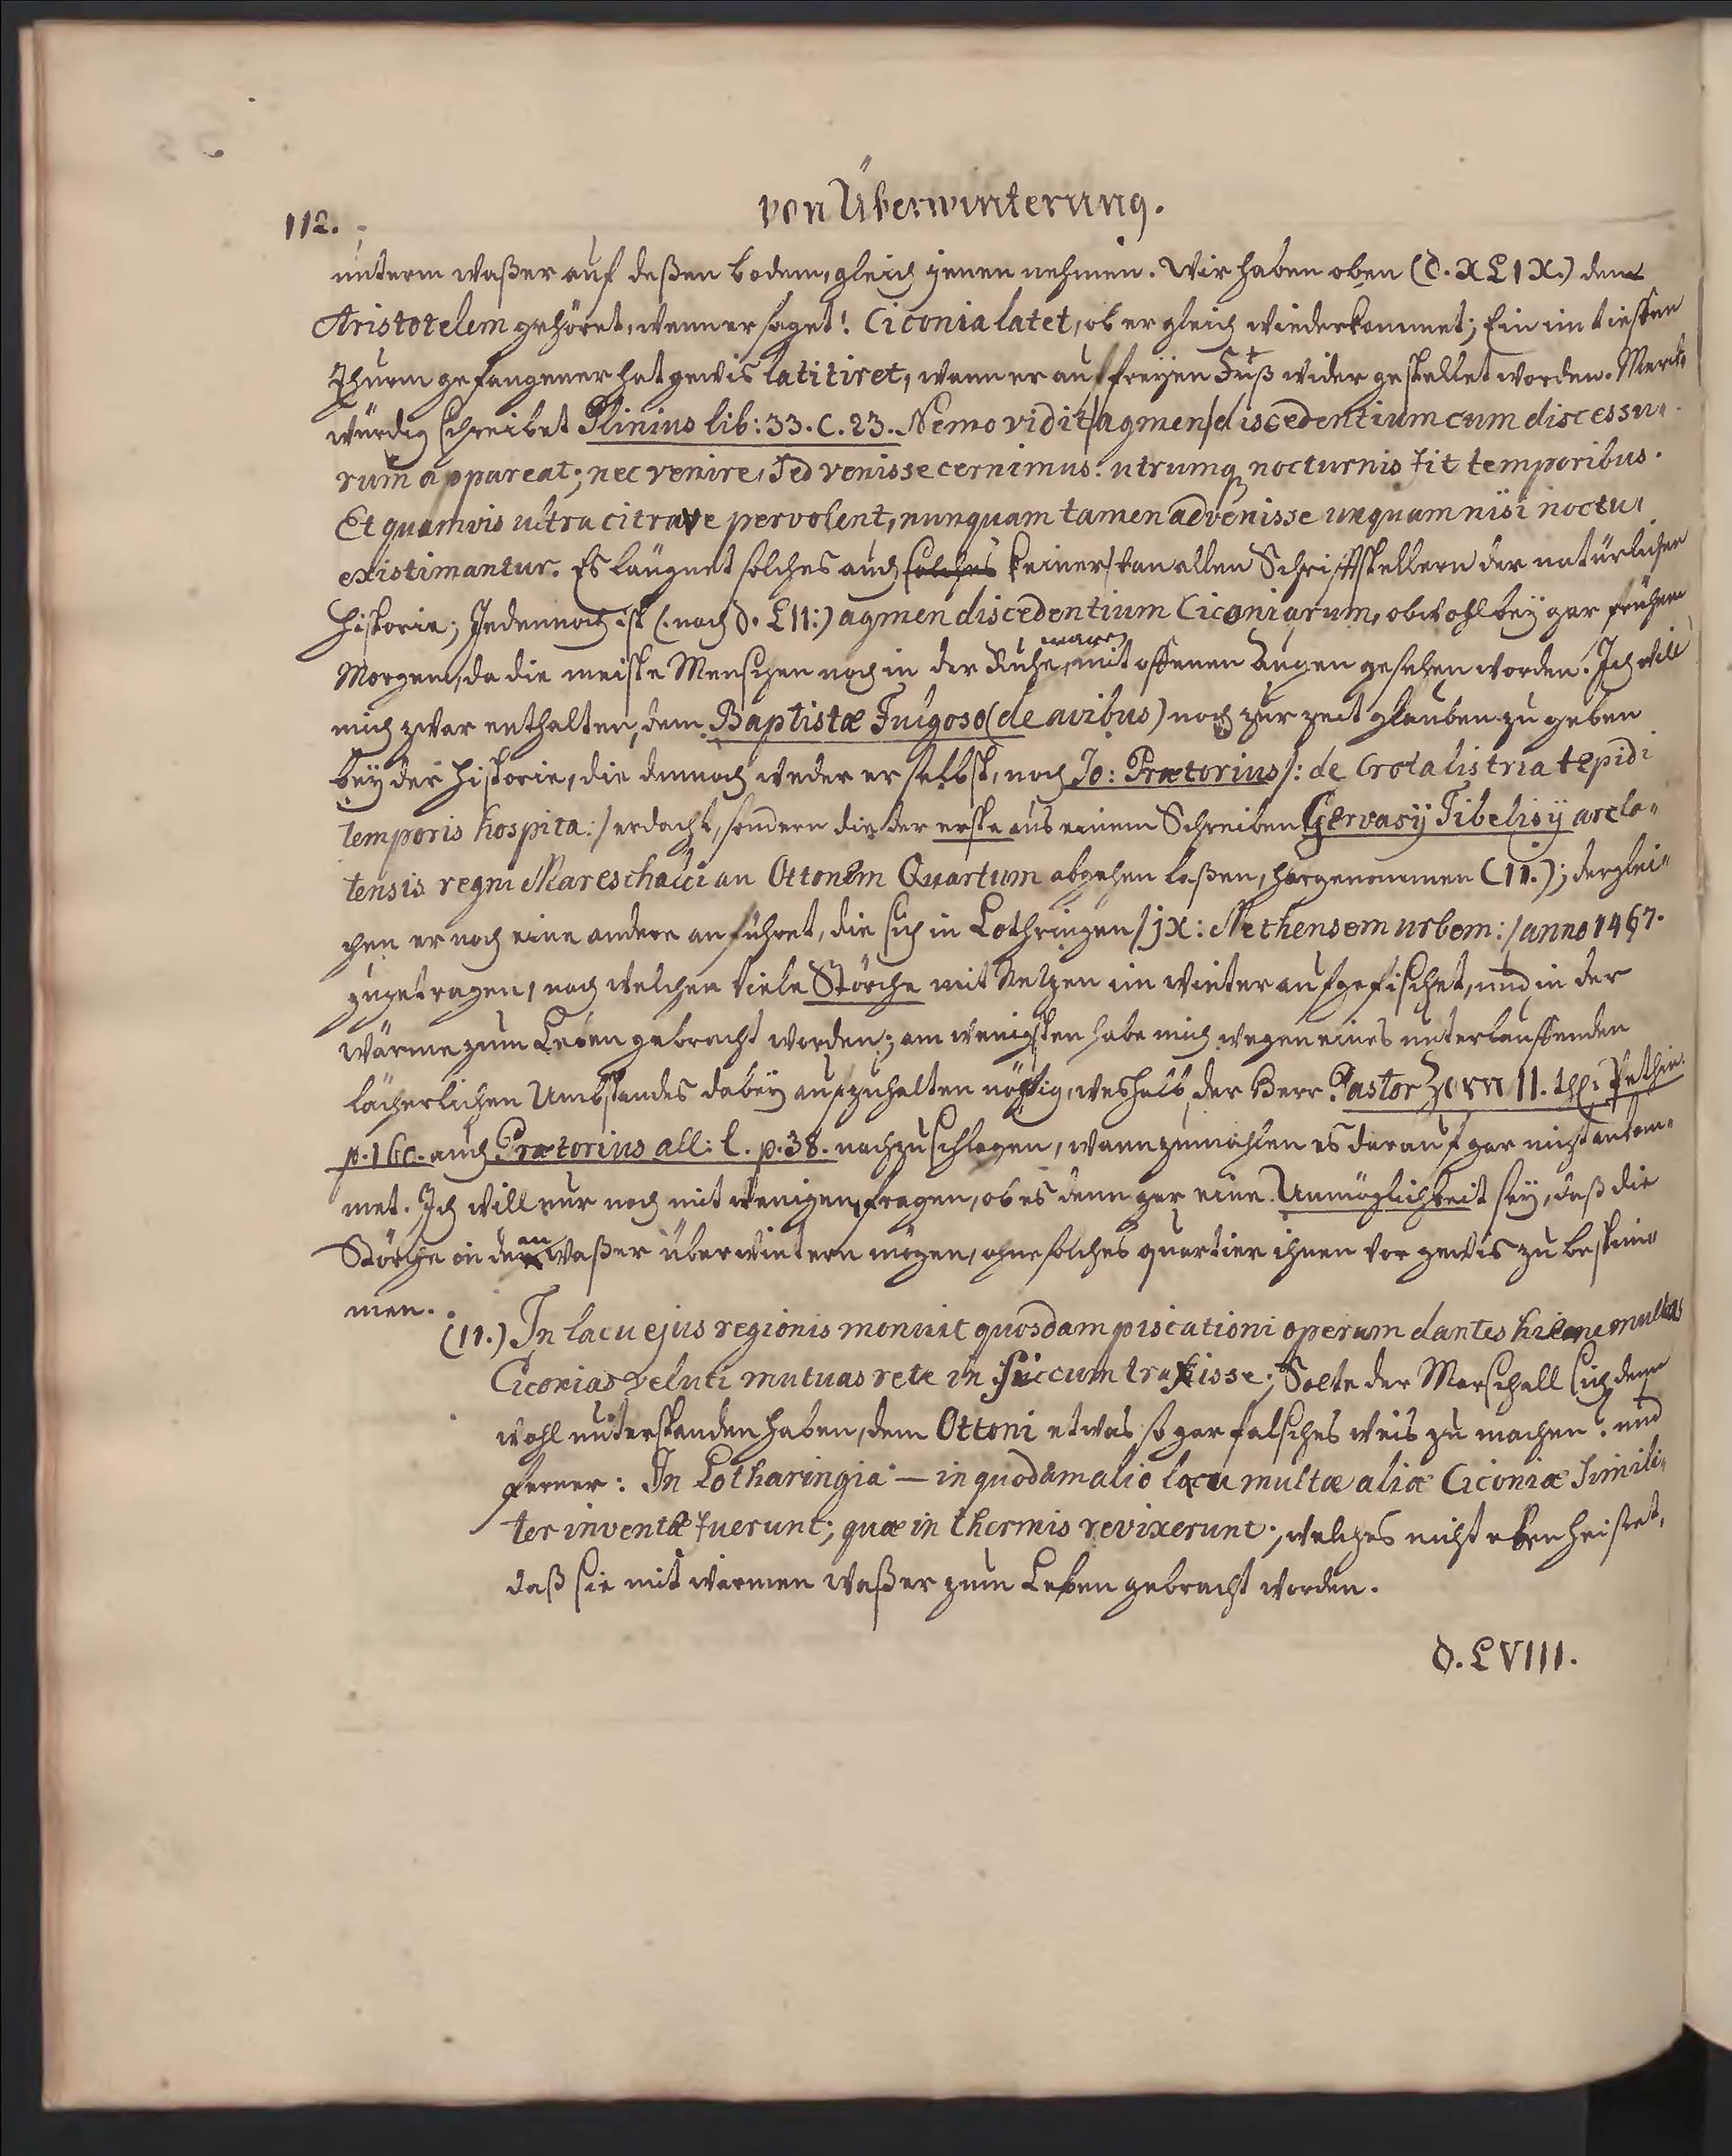 112.
von Überwinterung.
unterm waßer auf deßen boden, gleich jenen nehmen. Wir haben oben (§. XLIX.) den
Aristotelem gehöret, wenn er saget! Ciconia latet, ob er gleich wiederkommet; Ein im tieffen
Thurm gefangener hat gewis latitiret, wann er auf freyen Fuß wider gestellet worden. Merck-
würdig schreibet Plinius lib: 33. C. 23. Nemo vidit agmen discedentium cum discessu-
rum appareat; nec venire, sed venisse cernimus: utrumq nocturnis fit temporibus.
Et quamvis ultra citrave pervolent, nunquam tamen advenisse unquam nisi noctu
existimantur. Es läugnet solches auch solches keiner von allen Schrifftstellern der natürlichen
Historie; Jedennoch ist (: nach §. LII:) agmen discedentium Ciconiarum, obwohl bey gar frühem
Morgen, da die meiste Menschen noch in der Ruhe, waren mit offenen Augen gesehen worden. Ich will
mich zwar enthalten, dem Baptistæ Fulgoso (de avibus) noch zur zeit glauben zu geben
bey der Historie, die dennoch weder er selbst, noch Jo: Prætorius /: de Crotalistria tepidi
temporis hospita :/ erdacht, sondern die der erste aus einem Schreiben Gervasÿ Tibelisÿ arela-
tensis regni Mareschalci an Ottonem Quartum abgehen laßen, hergenommen (11.); derglei-
chen er noch eine andere anführet, die sich in Lothringen /jx: Methensem urbem :/ anno 1467.
zugetragen, nach welchen viele Störche mit Netzen im winter aufgefischet, und in der
wärme zum Leben gebracht worden; am wenigsten habe mich wegen eines unterlauffenden
lächerlichen Umbstandes dabey aufzuhalten nöhtig, weshalb der Herr Pastor Zorn II. thl: Pethin.
p. 160. auch Prætorius all: l. p. 38. nachzuschlagen, wann zumahlen es darauf gar nicht ankom-
met. Ich will nur noch mit wenigen fragen, ob es denn gar eine Unmöglichkeit sey, daß die
Störche in dem waßer überwintern mögen, ohne solches quartier ihnen vor gewis zu bestim-
men.
(11.) In lacu ejus regionis monuit quosdam piscationi operam dantes hieme multas
Ciconias veluti mutuas rete in siccum traxisse; Solte der Marschall sich denn
wohl unterstanden haben, dem Ottoni etwas so gar falsches weis zu machen? und
ferner: In Lotharingia — in quodam alio lacu multæ aliæ Ciconiæ simili-
ter inventæ fuerunt; quæ in thermis revixerunt; welches nicht eben heisset,
daß sie mit warmen waßer zum Leben gebracht worden.
§. LVIII.